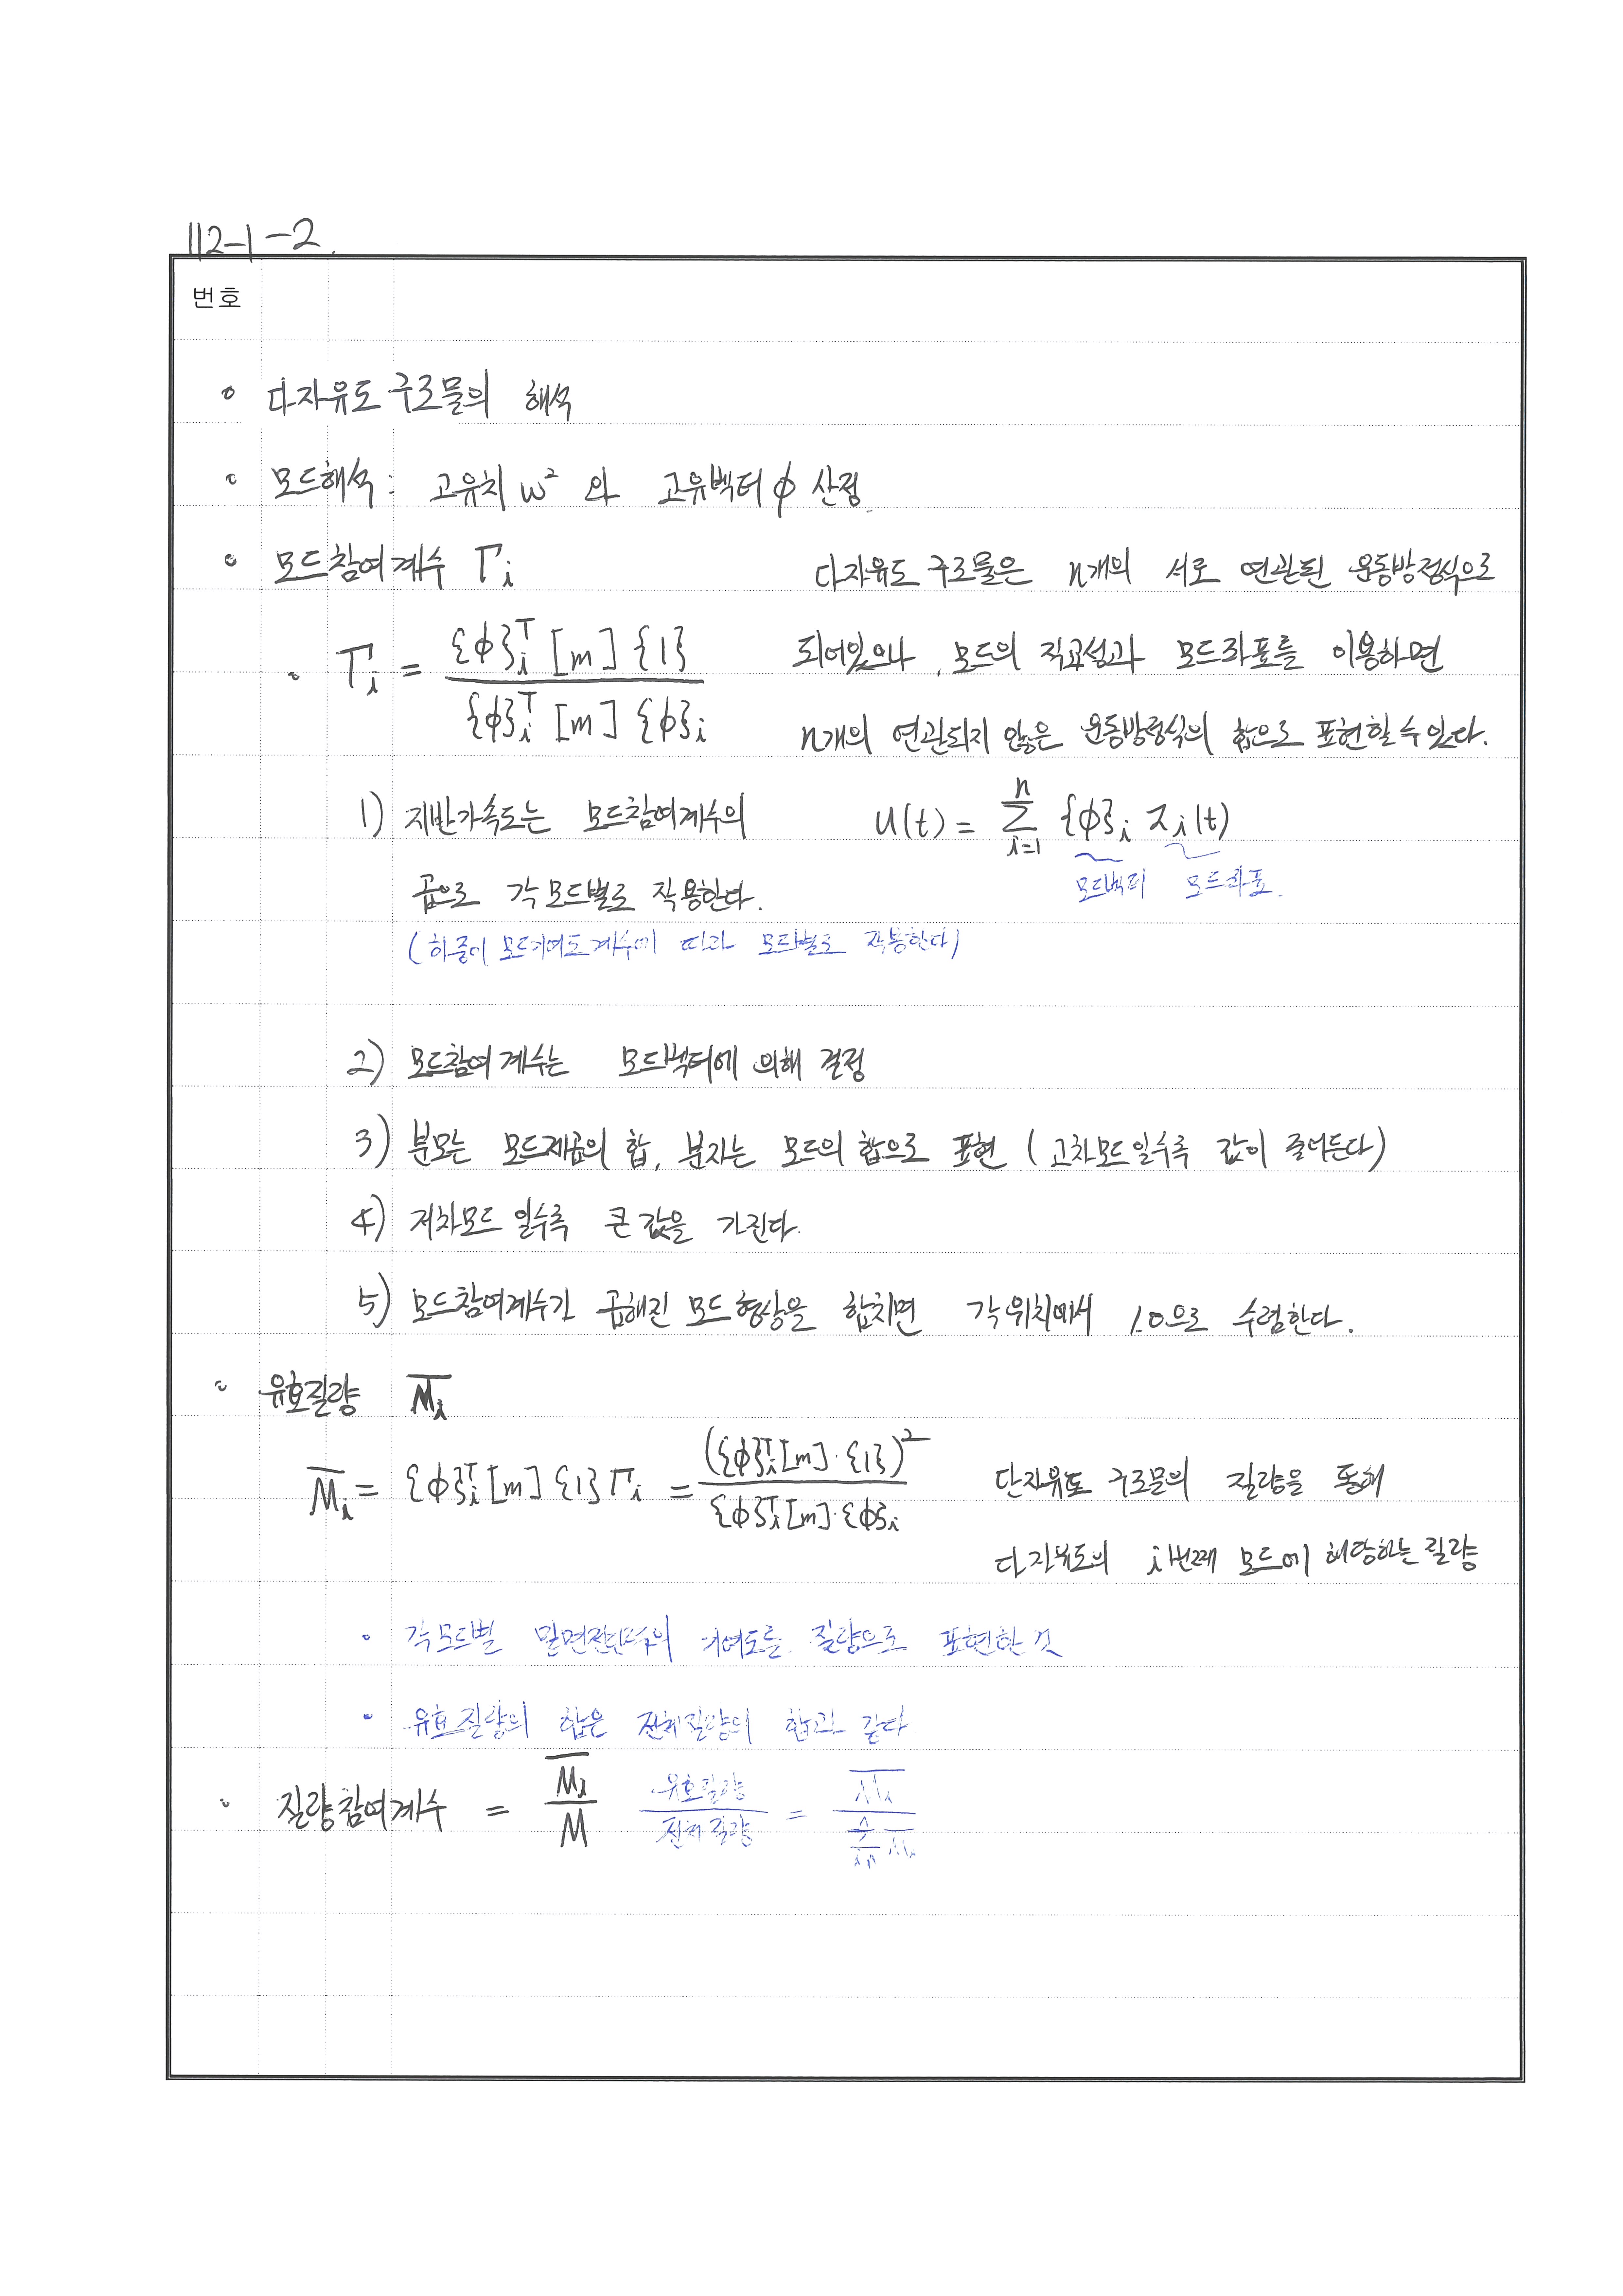 112-1-2.
번호
◦ 다자유도 구조물의 해석
◦ 모드해석 : 고유치 ω² 와 고유벡터 ϕ 산정.
◦ 모드참여계수 Γi
다자유도 구조물은 n개의 서로 연관된 운동방정식으로
◦ Γi = {ϕ}iᵀ [m] {1} / {ϕ}iᵀ [m] {ϕ}i
되어있으나, 모드의 직교성과 모드좌표를 이용하면
n개의 연관되지 않은 운동방정식의 합으로 표현할 수 있다.
1) 지반가속도는 모드참여계수의
u(t) = Σ(i=1 → n) {ϕ}i zi(t)
모드벡터 모드좌표.
곱으로 각 모드별로 작용한다.
(하중이 모드기여도계수에 따라 모드별로 작용한다)
2) 모드참여계수는 모드벡터에 의해 결정
3) 분모는 모드제곱의 합, 분자는 모드의 합으로 표현 (고차모드일수록 값이 줄어든다)
4) 저차모드 일수록 큰 값을 가진다.
5) 모드참여계수가 곱해진 모드 형상을 합치면 각 위치에서 1.0으로 수렴한다.
◦ 유효질량 M̅i
M̅i = {ϕ}iᵀ[m] {1} Γi = ({ϕ}iᵀ[m]·{1})² / {ϕ}iᵀ[m]·{ϕ}i
단자유도 구조물의 질량을 통해
다자유도의 i번째 모드에 해당하는 질량
◦ 각 모드별 밑면전단력의 기여도를 질량으로 표현한 것
◦ 유효질량의 합은 전체질량의 합과 같다
◦ 질량참여계수 = M̅i / M 유효질량 / 전체질량 = M̅i / Σ M̅i